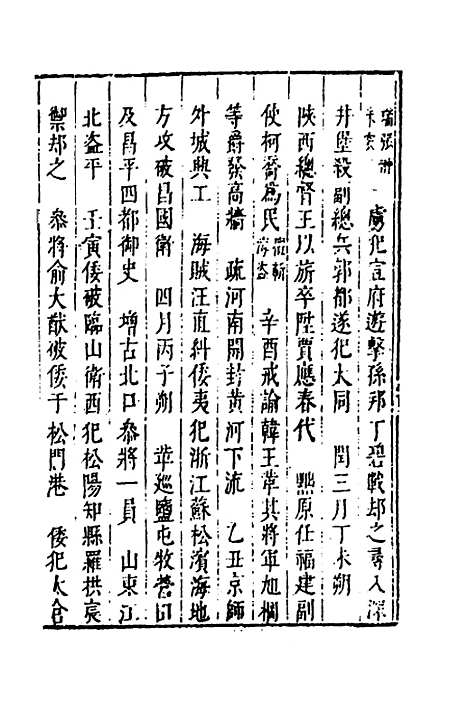 虜犯宣府遊擊孫邦丁碧戰却之尋入深
井堡殺副總兵郭都遂犯大同　閏三月丁未朔
陝西總督王以旂卒陞賈應春代　黜原任福建副
使柯喬為民　辛酉戒諭韓王革其將軍旭櫚
等爵發高墻　疏河南開封黃河下流　乙丑京師
外城興工　海賊汪直糾倭夷犯浙江蘇松濱海地
方攻破昌國衛　四月丙子朔　革巡鹽屯牧營田
及昌平四都御史　增古北口叅將一員　山東江
北盜平　壬寅倭破臨山衛西犯松陽知縣羅拱宸
禦却之　叅將俞大猷破倭于松門港　倭犯太倉